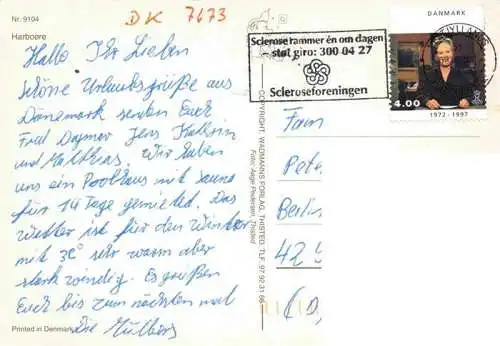 Nr. 9104
Harboøre
DK 7673
Hallo Ihr Lieben
schöne Urlaubsgrüße aus
Dänemark senden Euch
Fred Dagmar Jens Kathrin
und Matthias. Wir haben
uns ein Poolhaus mit Sauna
für 14 Tage gemietet. Das
Wetter ist für den Winter
mit 3c° sehr warm aber
stark windig. Es grüßen
Euch bis zum nächsten mal
Die Mülbers
Printed in Denmark
COPYRIGHT: WADMANNS FORLAG, THISTED. TLF. 97 92 31 66
Foto: Aage Pedersen, Thisted
Sclerose rammer én om dagen
- støt giro: 300 04 27
Scleroseforeningen
DANMARK
4.00
1972 - 1997
Fam
Pete
Berlin
42